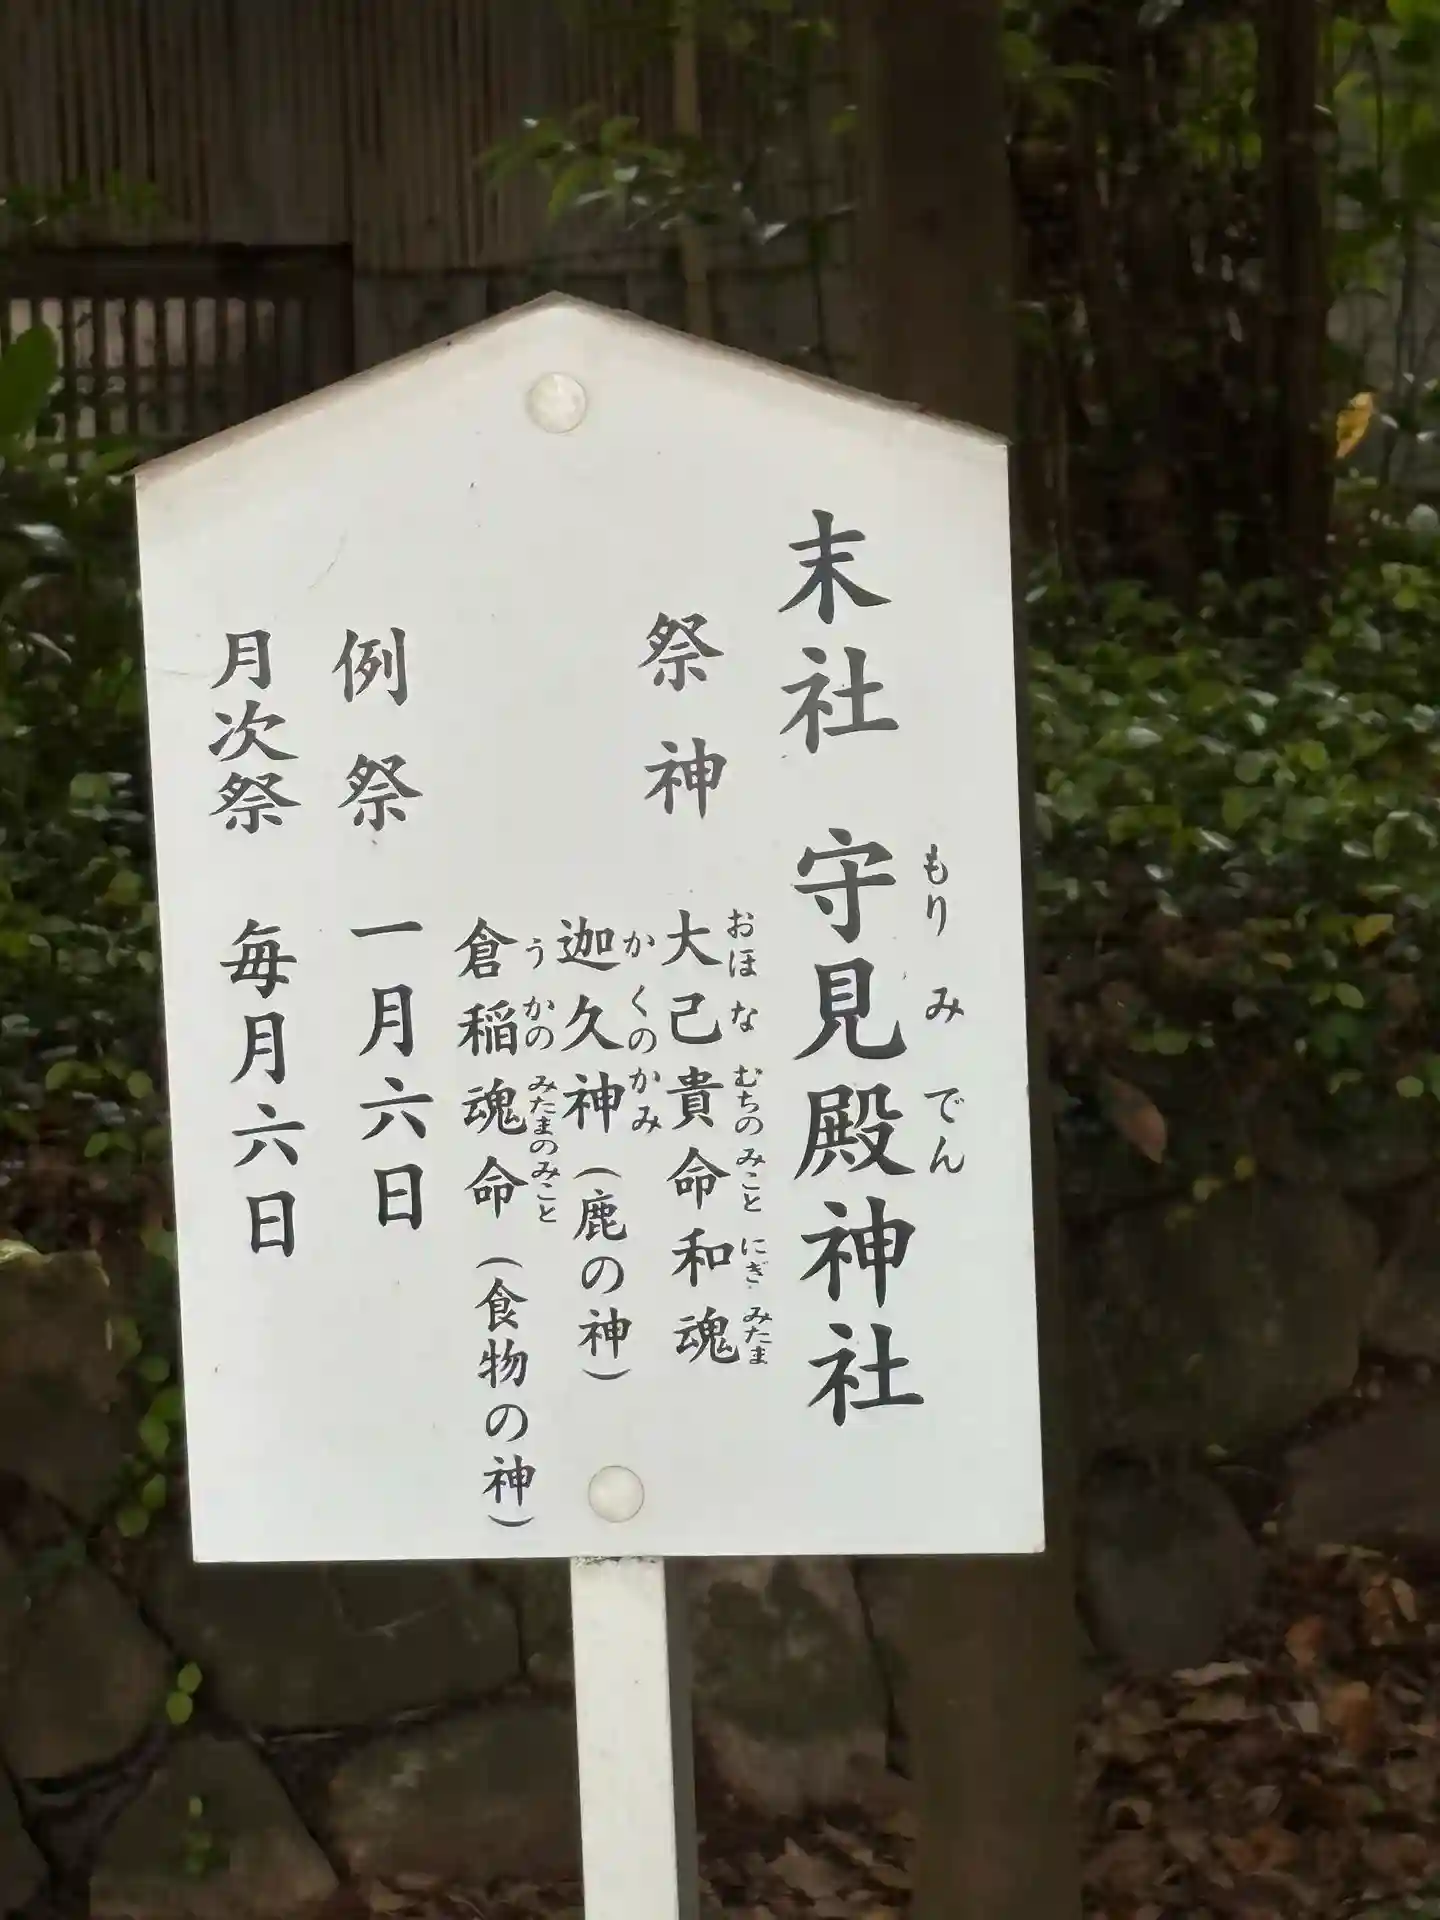 末社 守見殿神社
もりみでん
祭神
大己貴命和魂
おほなむちのみこと にぎみたま
迦久神(鹿の神)
かくのかみ
倉稲魂命(食物の神)
うかのみたまのみこと
例祭 一月六日
月次祭 毎月六日